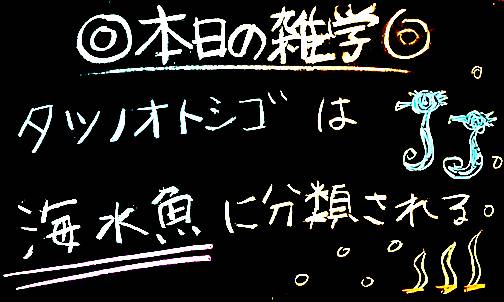 ◎本日の雑学◎
タツノオトシゴは
海水魚に分類される。